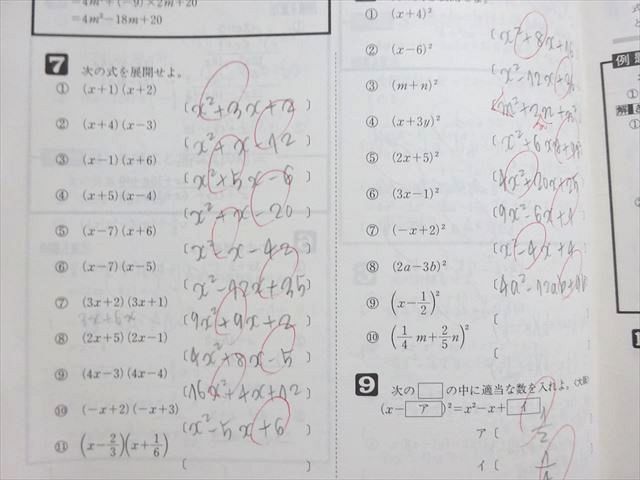 =4m²+(-9)×2m+20
=4m²-18m+20
7 次の式を展開せよ。
① (x+1)(x+2)
(x²+3x+2)
② (x+4)(x-3)
(x²+x-12)
③ (x-1)(x+6)
(x²+5x-6)
④ (x+5)(x-4)
(x²+x-20)
⑤ (x-7)(x+6)
(x²-x-42)
⑥ (x-7)(x-5)
(x²-12x+35)
⑦ (3x+2)(3x+1)
(9x²+9x+2)
⑧ (2x+5)(2x-1)
(4x²+8x-5)
⑨ (4x-3)(4x-4)
(16x²+4x+12)
⑩ (-x+2)(-x+3)
(x²-5x+6)
⑪ (x-2/3)(x+1/6)
( )
① (x+4)²
(x²+8x+16
② (x-6)²
(x²-12x+36
③ (m+n)²
④ (x+3y)²
⑤ (2x+5)²
(4x²+20x+25
⑥ (3x-1)²
(9x²-6x+1
⑦ (-x+2)²
(x²-4x+4
⑧ (2a-3b)²
⑨ (x-1/2)²
(
⑩ (1/4 m+2/5 n)²
(
9 次の□の中に適当な数を入れよ。(大阪)
(x-ア)²=x²-x+イ
ア( 1/2
イ( 1/4
例題
①
解き
①